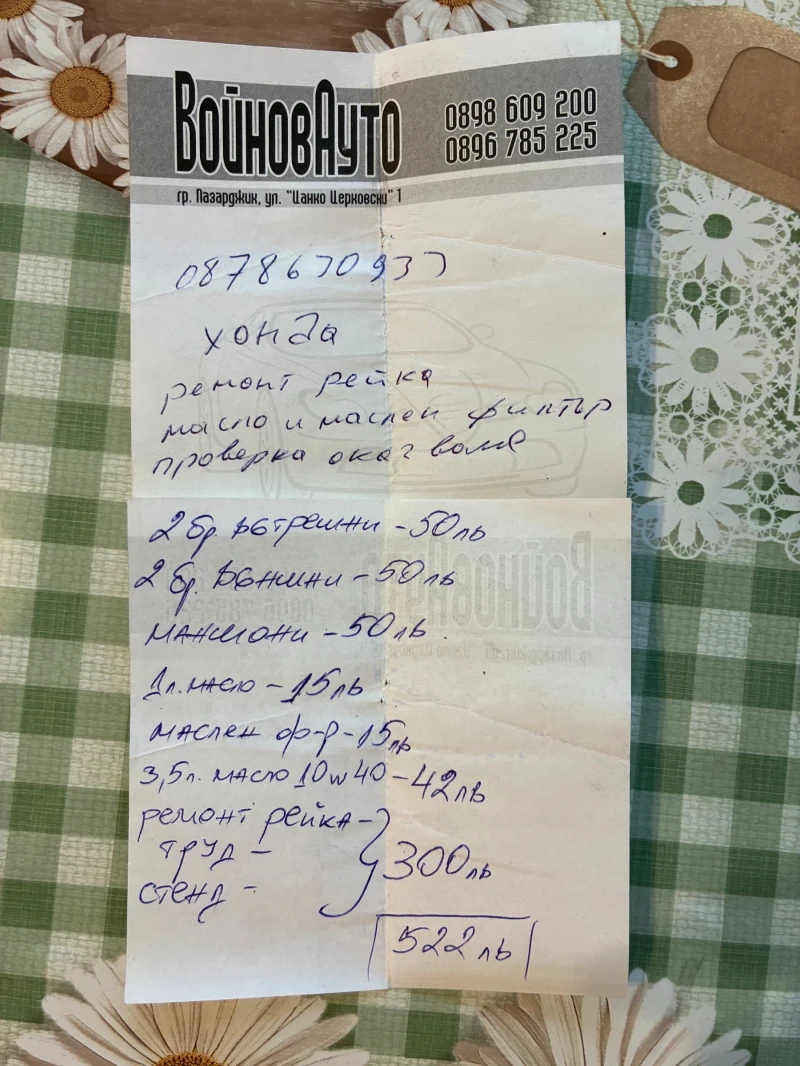 ВойновАуто
0898 609 200
0896 785 225
гр. Пазарджик, ул. "Цанко Церковски" 1
0878670937
хонда
ремонт рейка
масло и маслен филтър
проверка окачване
2 бр. вътрешни - 50 лв
2 бр. външни - 50 лв
маншони - 50 лв.
1 л. масло - 15 лв
маслен ф-р - 15 лв
3,5 л. масло 10w40 - 42 лв
ремонт рейка -
труд -
300 лв
стенд -
522 лв